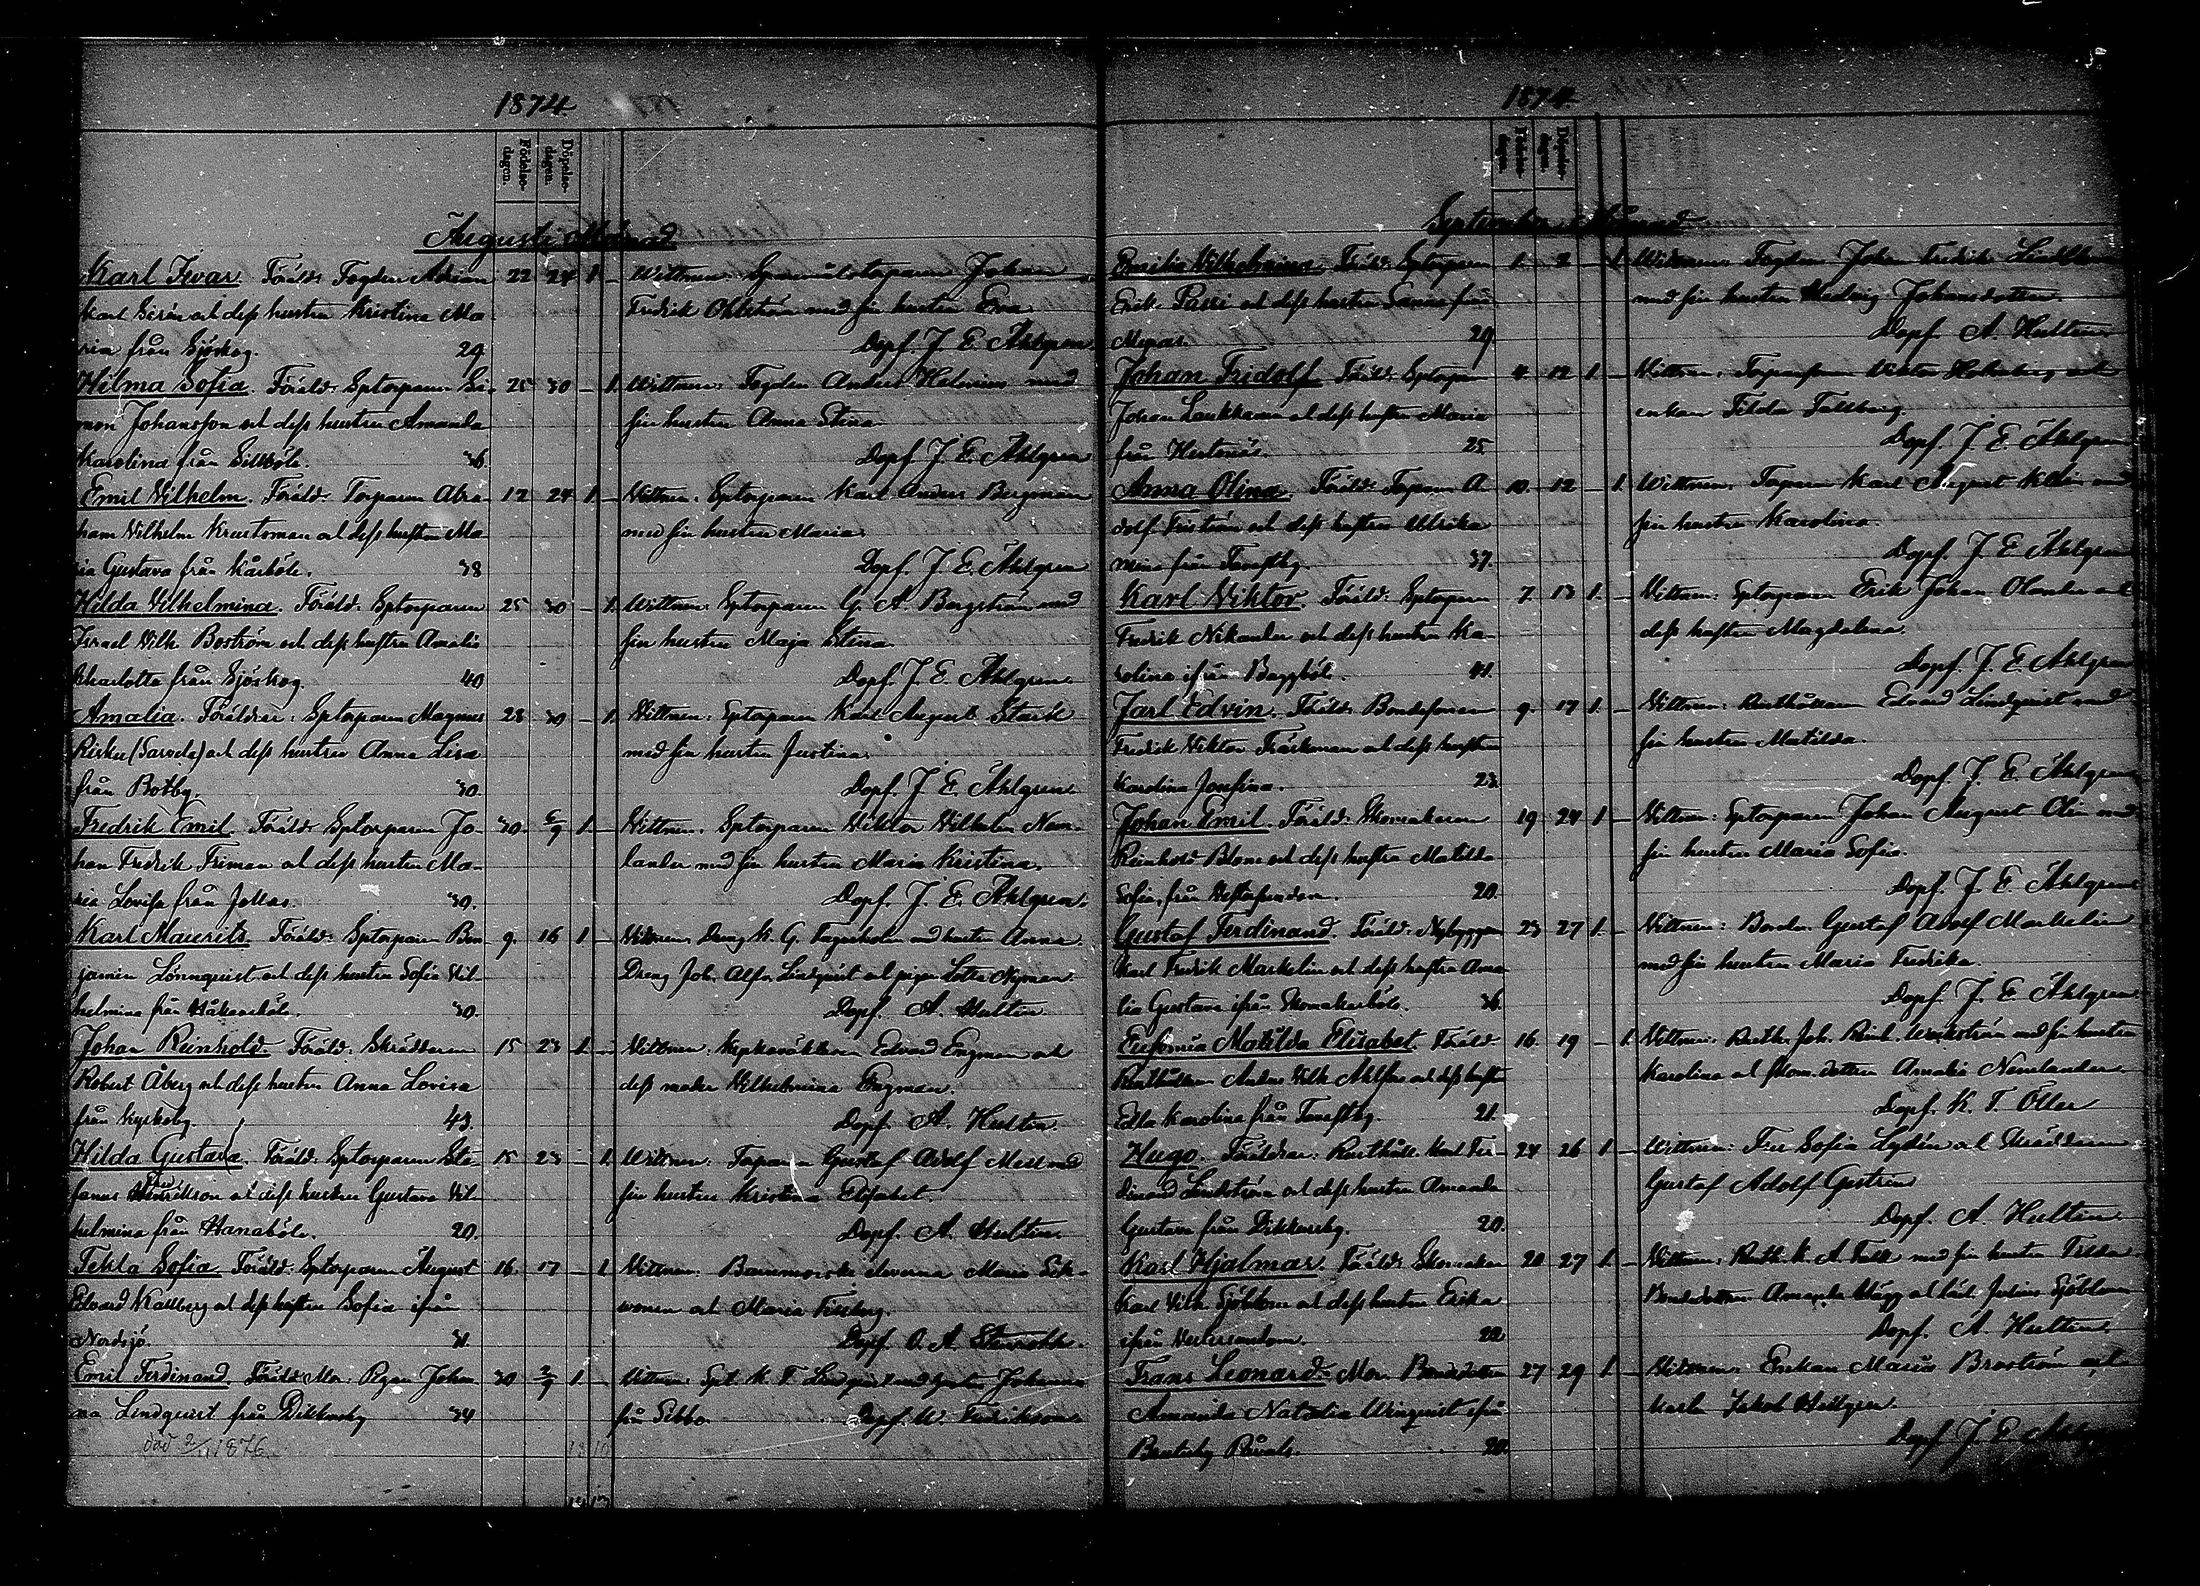 1874
Födelse-
dagen.
Döpelse-
dagen.
Augusti Månad
Karl Ivar. Föräld: Fogden Adrian 22 24 1. –
Karl och dess hustru Kristina Ma-
ria från Sjöskog. 29.
Wittnen: Johan
Fredrik Ohlström med sin hustru Eva
Döpf. J. E. Ahlgren
Hilma Sofia. Föräld: Sptorparen Si- 25 30 – 1.
mon Johansson och dess hustru Amanda
Karolina från 36.
Wittnen: Fogden Anders Helenius med
sin hustru Anna Stina.
Döpf. J. E. Ahlgren
Emil Vilhelm. Föräld: Torparen Abra- 12 24 1. –
ham Vilhelm och dess hustru Ma-
ria Gustava från Kårböle. 38
Wittnen: Sptorparen Karl Anders Bergman
med sin hustru Maria.
Döpf. J. E. Ahlgren
Hilda Vilhelmina. Föräld: Sptorparen 25 30 – 1.
Israel Vilh. Boström och dess hustru Amalia
Charlotta från Sjöskog. 40
Wittnen: Sptorparen G. A. Bergström med
sin hustru Maja Stina.
Döpf. J. E. Ahlgren
Amalia. Föräldrar: Sptorparen Magnus 28 30 – 1.
Risku och dess hustru Anna Lisa
från Botby. 30.
Wittnen: Sptorparen Karl August
med sin hustru Justina.
Döpf. J. E. Ahlgren
Fredrik Emil. Föräld: Sptorparen Jo- 30. 6/9 1. –
han Fredrik Friman och dess hustru Ma-
ria Lovisa från Jollas. 30.
Wittnen: Sptorparen Viktor Vilhelm Nem-
lander med sin hustru Maria Kristina.
Döpf. J. E. Ahlgren.
Karl Maurits. Föräld: Sptorparen Ben- 9. 16 1. –
jamin Lönnquist och dess hustru Sofia Vil-
helmina från Håkansböle. 30.
Wittnen: Dreng K. G. Fagerholm med hustru Anna.
Dreng Joh. Alfr. Lindquist och pigan Lotta Nyman.
Döpf. A. Hultin
Johan Reinhold. Föräld: Skräddaren 15 23 1. –
Robert Åberg och dess hustru Anna Lovisa
från Kyrkoby. 43.
Wittnen: Kyrkovaktaren Edvard Engman och
dess moder Vilhelmina Engman.
Döpf. A. Hultin
Hilda Gustava. Föräld: Sptorparen Ste- 15 23 – 1.
fanus och dess hustru Gustava Vil-
helmina från Hanaböle. 20.
Wittnen: Torparen Gustaf Adolf med
sin hustru Kristina Elisabet.
Döpf. A. Hultin.
Tekla Sofia. Föräld: Sptorparen August 16. 17 – 1
Edvard Kallberg och dess hustru Sofia ifrån
Nordsjö.
Wittnen: Barnmorske eleverna Maria
och Maria
Döpf. O. A. Stenroth.
Emil Ferdinand. Föräld: Mor: Pigan Johan- 30 2/9 1. –
na Lindquist från Dickursby 34
Wittnen: Spt. K. F. Lindquist med hustru Johanna
från Sibbo. Döpf. W. Fredrikson
död 2/11 1876
1874
Födelse-
dagen.
Döpelse-
dagen.
September Månad
Emilia Vilhelmina. Föräld: Sptorparen 1. 2 – 1.
Erik Passi och dess hustru Sanna från
29.
Wittnen: Fogden Johan Fredrik
med sin hustru Hedvig Johansdotter.
Döpf. A. Hultin
Johan Fridolf. Föräld: Sptorparen 4 12 1. –
Johan Laukkanen och dess hustru Maria
från Hertonäs. 25.
Wittnen: Viktor och
enkan Tilda Tallberg.
Döpf. J. E. Ahlgren
Anna Olina. Föräld: Torparen A- 10. 12 – 1.
dolf och dess hustru Ulrika
från Tomtby. 37.
Wittnen: Torparen Karl August med
sin hustru Karolina.
Döpf. J. E. Ahlgren
Karl Viktor. Föräld: Sptorparen 7. 13 1. –
Fredrik Nikander och dess hustru Ka-
rolina ifrån Baggböle. 41.
Wittnen: Sptorparen Erik Johan Olander och
dess hustru Magdalena.
Döpf. J. E. Ahlgren
Jarl Edvin. Föräld: Bondesonen 9. 17 1. –
Fredrik Viktor Träskman och dess hustru
Karolina Josefina. 23.
Wittnen: Rusthållaren Edvard Lindquist med
sin hustru Matilda.
Döpf. J. E. Ahlgren
Johan Emil. Föräld: Skomakaren 19 24 1. –
Reinhold Blom och dess hustru Matilda
Sofia, från 20.
Wittnen: Sptorparen Johan August Olin med
sin hustru Maria Sofia.
Döpf. J. E. Ahlgren
Gustaf Ferdinand. Föräld: Nybyggaren 23 27 1. –
Karl Fredrik Markelin och dess hustru Ama-
lia Gustava ifrån Skomakarböle. 36.
Wittnen: Bonden Gustaf Adolf Markelin
med sin hustru Maria Fredrika.
Döpf. J. E. Ahlgren
Eufemia Matilda Elisabet. Föräld: 16. 19 – 1.
Rusthållaren Anders Vilh. Ahlfors och dess hustru
Edla Karolina från Tomtby. 21.
Wittnen: Rusth. Joh. Reinh. med sin hustru
Karolina och dottren Amalia Nemlander
Döpf. K. T. Öller
Hugo. Föräldrar: Rusthåll. Karl Fer- 24 26 1. –
dinand Lindström och dess hustru Amanda
Gustava från Dickursby. 20.
Wittnen: Fru Sofia Lydén och Skräddaren
Gustaf Adolf
Döpf. A. Hultin
Karl Hjalmar. Föräld: Skomakar 20 27 1. –
Karl Vilh. Sjöblom och dess hustru Erika
ifrån Vestersundom. 22.
Wittnen: Rusth. K. A. Falk med sin hustru Tilda
Bondedottren Amanda och Julius Sjöblom
Döpf. A. Hultin.
Frans Leonard. Mor. Bondedottren 27 29 1. –
Amanda Natalia ifrån
20.
Wittnen: Enkan Maria Broström och
Jakob Hellgren.
Döpf. J. E. Ahlgren